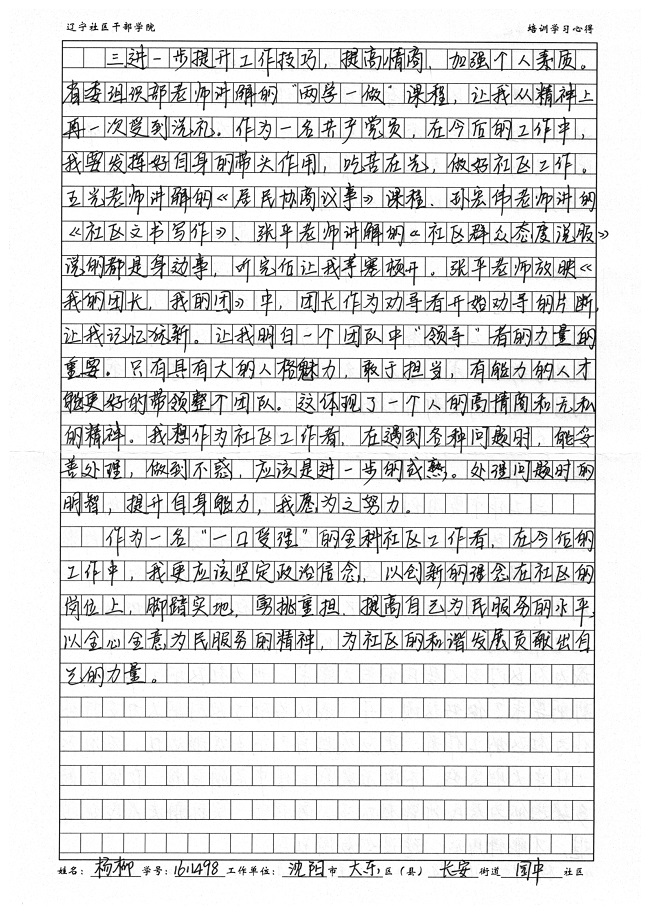 辽宁社区干部学院 培训学习心得
三进一步提升工作技巧，提高情商，加强个人素质。
省委组织部老师讲解的“两学一做”课程，让我从精神上
再一次受到洗礼。作为一名共产党员，在今后的工作中，
我要发挥好自身的带头作用，吃苦在先，做好社区工作。
王光老师讲解的《居民协商议事》课程、孙宏伟老师讲的
《社区文书写作》、张平老师讲解的《社区群众态度说服》
说的都是身边事，听完后让我茅塞顿开。张平老师放映《
我的团长，我的团》中，团长作为劝导者开始劝导的片断，
让我记忆犹新。让我明白一个团队中“领导”者的力量的
重要。只有具有大的人格魅力，敢于担当，有能力的人才
能更好的带领整个团队。这体现了一个人的高情商和无私
的精神。我想作为社区工作者，在遇到各种问题时，能妥
善处理，做到不惑，应该是进一步的成熟。处理问题时的
明智，提升自身能力，我愿为之努力。
作为一名“一口受理”的全科社区工作者，在今后的
工作中，我更应该坚定政治信念，以创新的理念在社区的
岗位上，脚踏实地，勇挑重担，提高自己为民服务的水平，
以全心全意为民服务的精神，为社区的和谐发展贡献出自
己的力量。
姓名：杨柳 学号：1611498 工作单位：沈阳 市 大东 区（县） 长安 街道 园中 社区